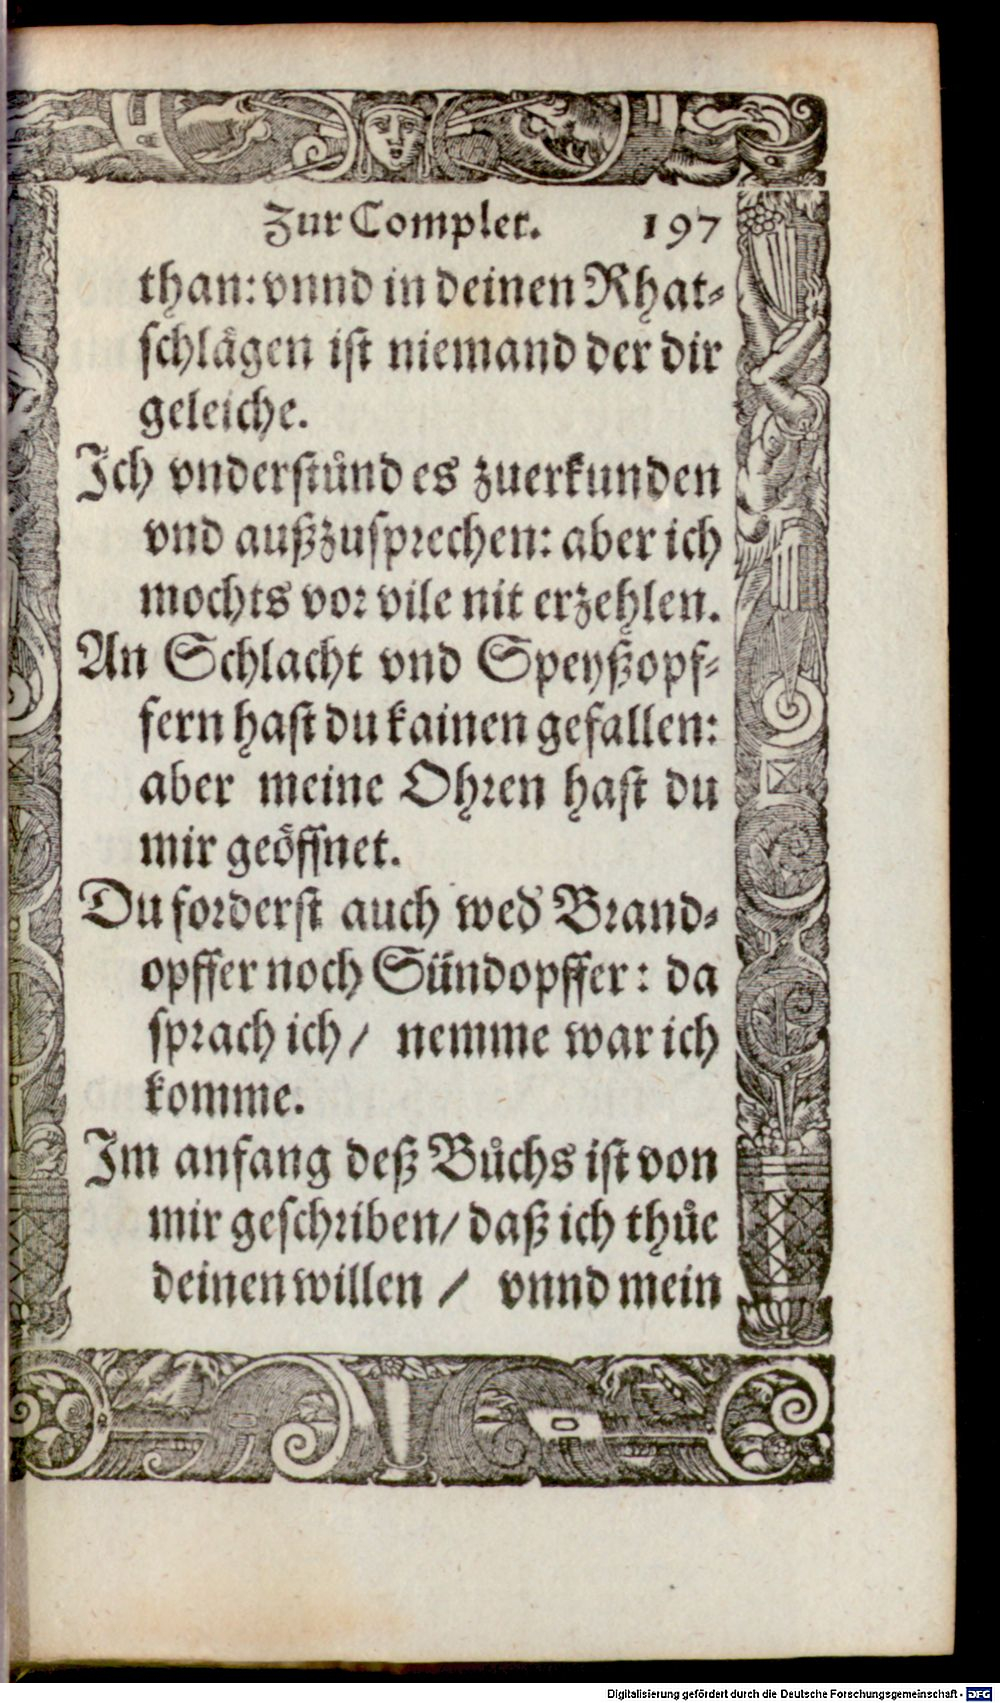 Zur Complet. 197
than: vnnd in deinen Rhat-
schlägen ist niemand der dir
geleiche.
Ich vnderstůnd es zuerkunden
vnd außzusprechen: aber ich
mochts vor vile nit erzehlen.
An Schlacht vnd Speyßopf-
fern hast du kainen gefallen:
aber meine Ohren hast du
mir geöffnet.
Du forderst auch wed' Brand-
opffer noch Sündopffer: da
sprach ich / nemme war ich
komme.
Im anfang deß Bůchs ist von
mir geschriben / daß ich thůe
deinen willen / vnnd mein
Digitalisierung gefördert durch die Deutsche Forschungsgemeinschaft - DFG